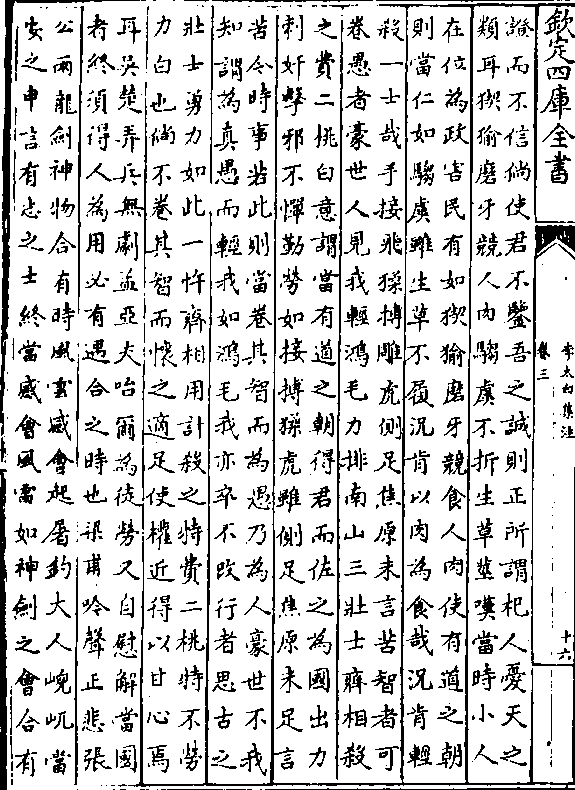 欽定四庫全書
李太白集注
卷三
十六
證而不信倘使君不鑒吾之誠則正所謂杞人憂天之
類耳猰㺄磨牙競人肉騶虞不折生草莖嘆當時小人
在位為政害民有如猰㺄磨牙競食人肉使有道之朝
則當仁如騶虞雖生草不履況肯以肉為食哉況肯輕
殺一士哉手接飛猱搏雕虎側足焦原未言苦智者可
卷愚者豪世人見我輕鴻毛力排南山三壯士齊相殺
之費二桃白意謂當有道之朝得君而佐之為國出力
刺奸擊邪不憚勤勞如接搏猱虎雖側足焦原未足言
苦今時事若此則當卷其智而為愚乃為人豪世不我
知謂為真愚而輕我如鴻毛我亦卒不改行者思古之
壯士勇力如此一忤齊相用計殺之特費二桃特不勞
力白也倘不卷其智而懷之適足使權近得以甘心焉
耳吳楚弄兵無劇孟亞夫咍爾為徒勞又自慰解當國
者終須得人為用必有遇合之時也梁甫吟聲正悲張
公兩龍劍神物合有時風雲感會起屠釣大人峴屼當
安之申言有志之士終當感會風雲如神劍之會合有